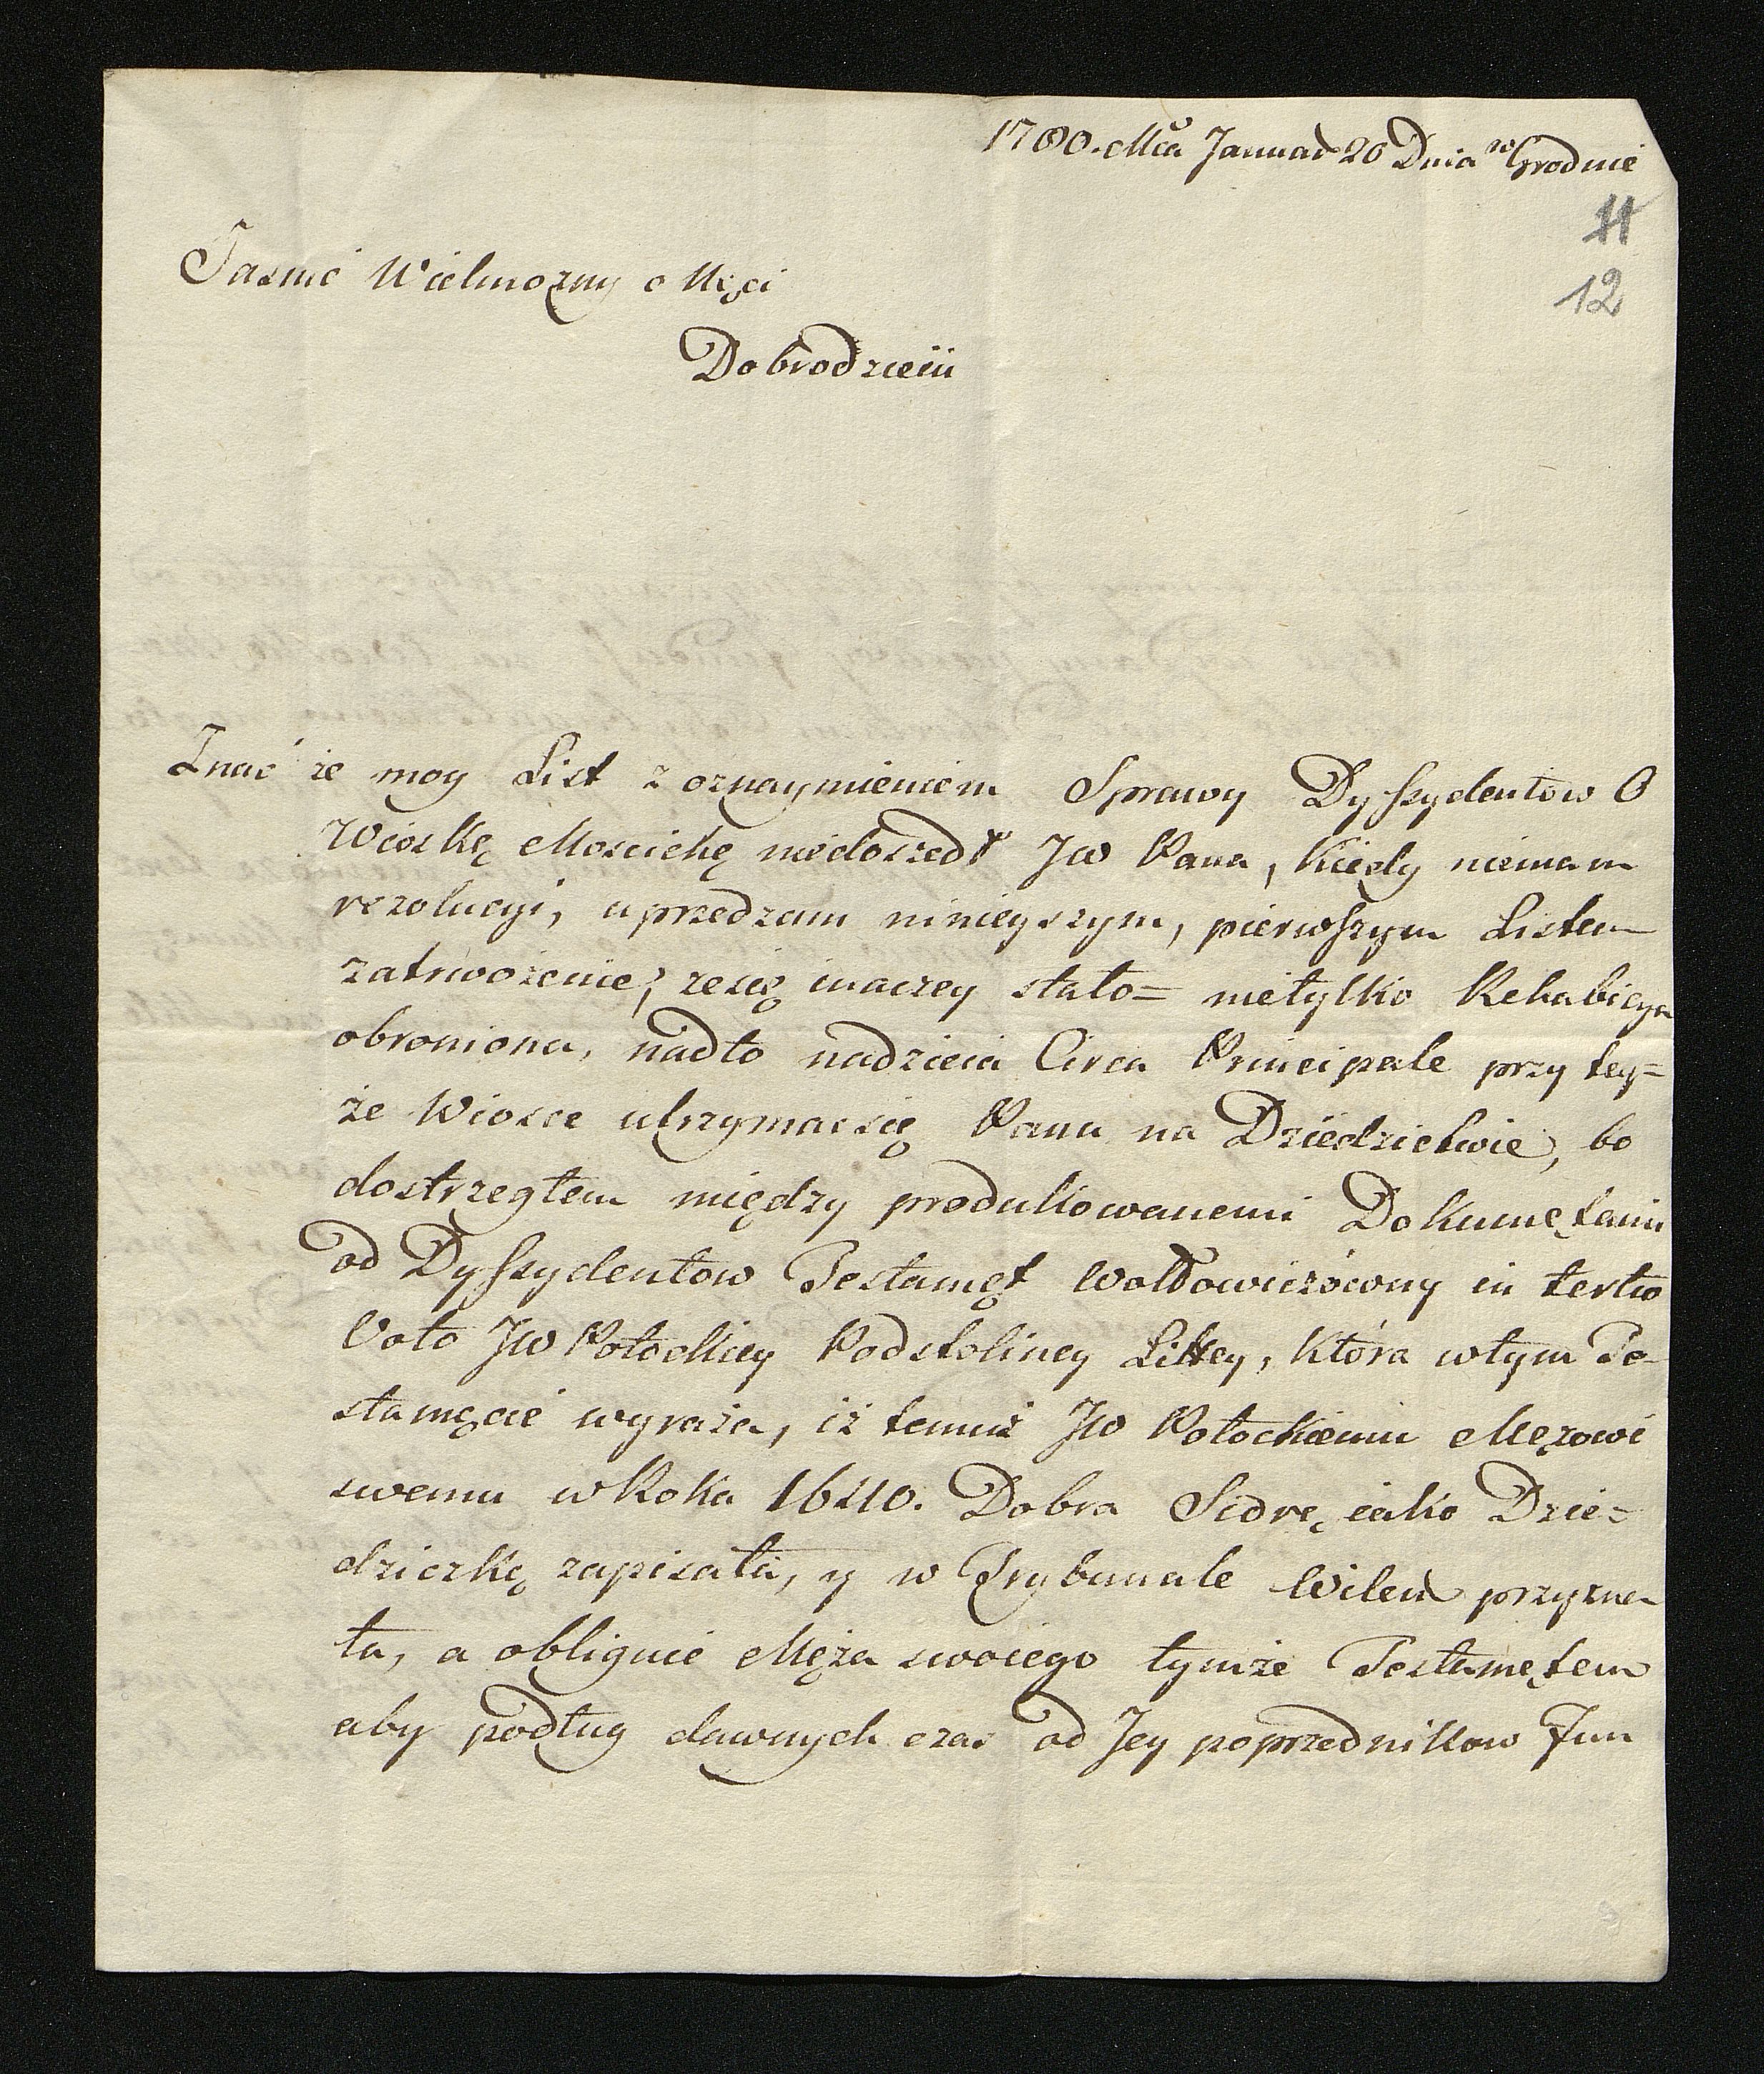 1780. Mca Januar 20 Dnia w Grodnie
11
12
Jasnie Wielmozny Msci
Dobrodzieiu
Znać że moy List z oznaymieniem Sprawy Dyssydentow O
Wioskę Moscickę niedoszedł JW Pana, kiedy niemam
rezolucyi, uprzedzam ninieyszym, pierwszym Listem
zatrwożenie, ze się inaczey stało= nietylko Rehabicya
obroniona, nadto nadzieia Circa Principale przy tey=
że Wiosce utrzymac się Panu na Dziedzictwie, bo
dostrzegłem między produkowanemi Dokumętami
od Dyssydentow Testamęt Wołłowiczowny in tertio
Voto JW Potockiey Podstoliney Littey, Która w tym Te=
stamęcie wyraża, iż temuż JW Potockiemu Mężowi
swemu w Roku 1640. Dobra Sidrę iako Dzie=
dziczkę zapisała, y w Trybunale Wileń przyzna
ła, a obliguie Męża swoiego tymże Testamętem
aby podług dawnych czas od Jey poprzednikow Fun